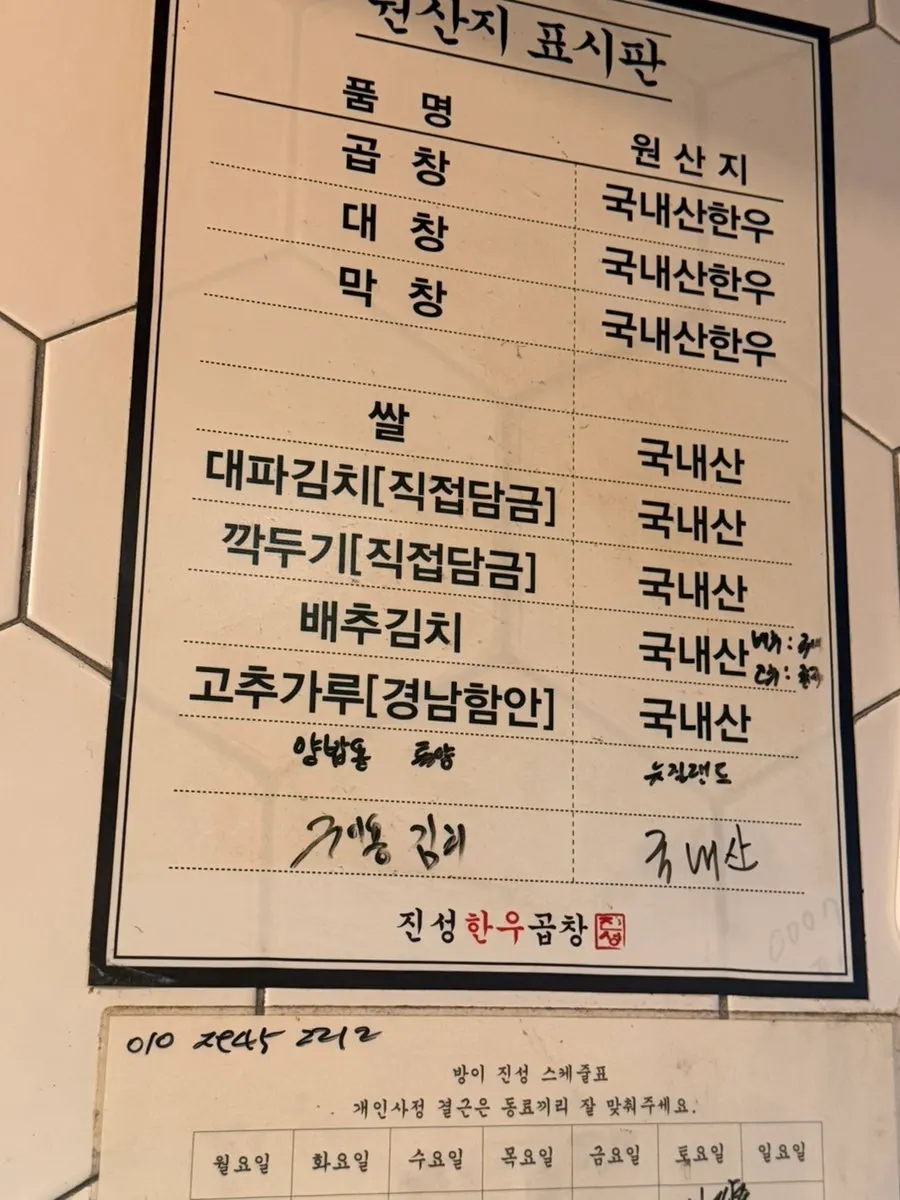 원산지 표시판
품 명 원 산 지
곱 창 국내산한우
대 창 국내산한우
막 창 국내산한우
쌀 국내산
대파김치[직접담금] 국내산
깍두기[직접담금] 국내산
배추김치 국내산
고추가루[경남함안] 국내산
양밥용 뉴질랜드
구이용 김치 국내산
진성한우곱창
010
방이 진성 스케줄표
개인사정 결근은 동료끼리 잘 맞춰주세요.
월요일 화요일 수요일 목요일 금요일 토요일 일요일